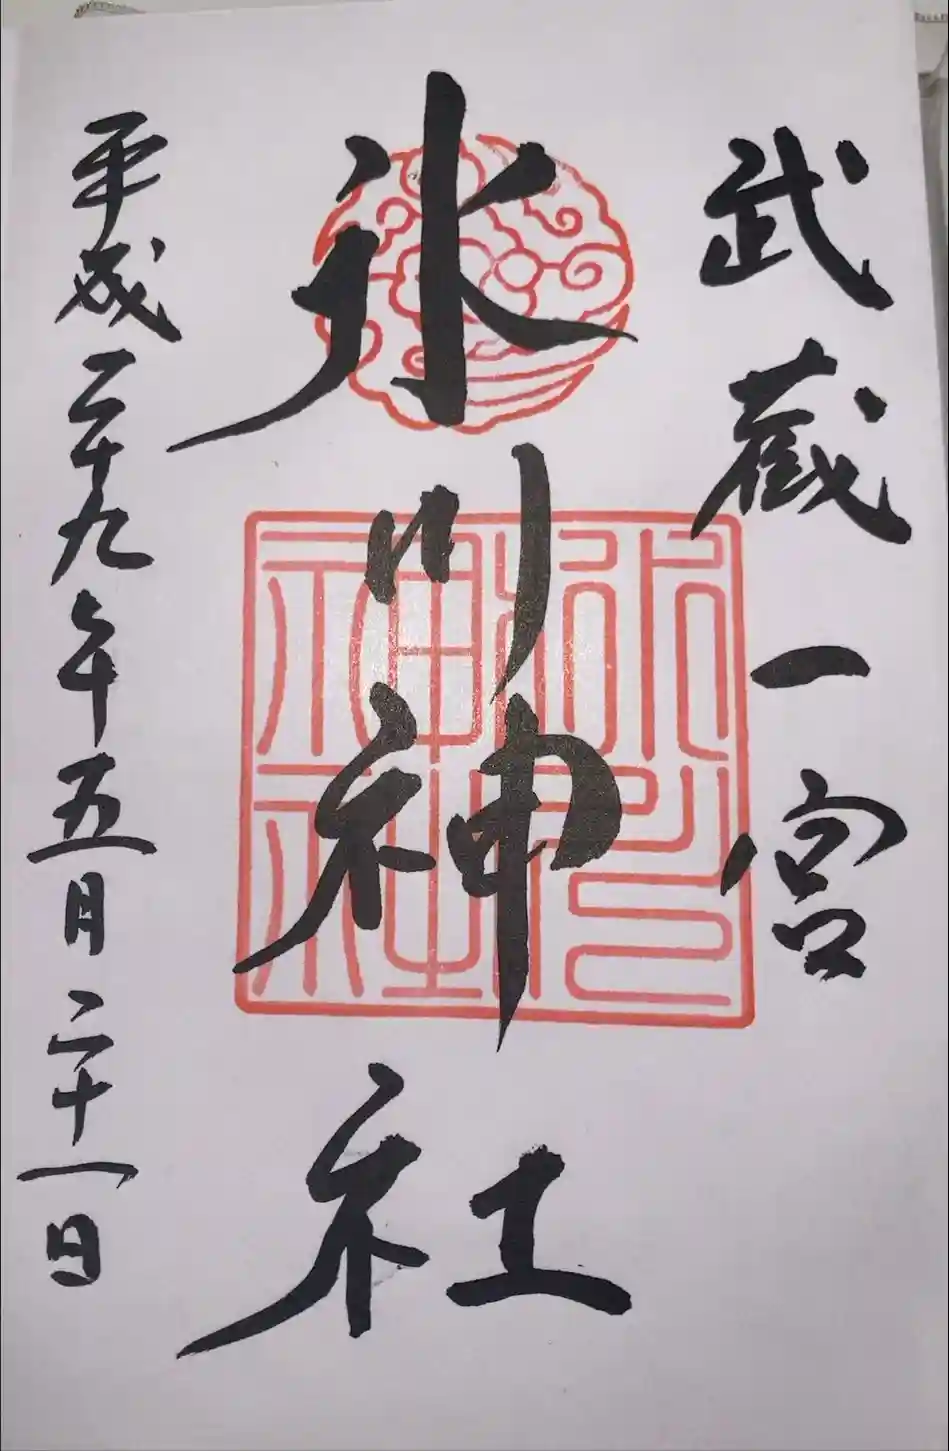 武蔵一宮
氷川神社
氷川神社
平成二十九年五月二十一日